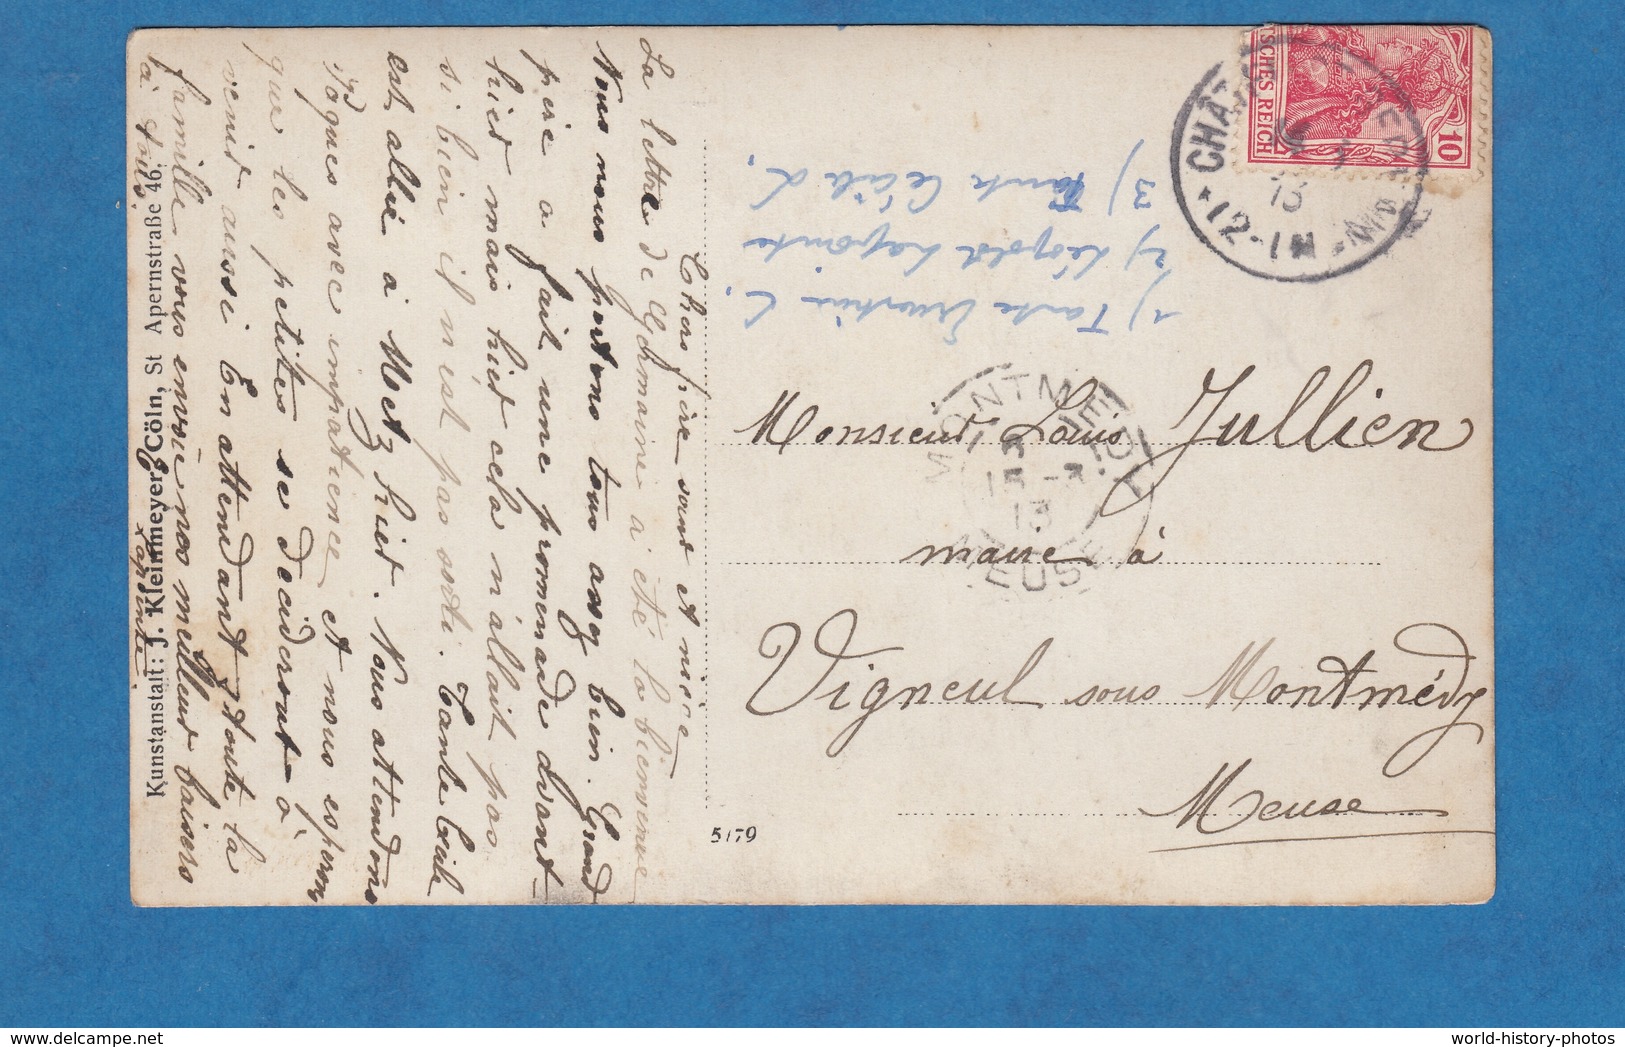 Chers frère sœur et nièce
La lettre de Germaine a été la bienvenue
Nous nous portons tous assez bien. Grand
père a fait une promenade avant-
hier mais hier cela n'allait pas
si bien il n'est pas sorti. Tante Cécile
est allée à Metz hier. Nous attendons
Pâques avec impatience et nous espérons
que les petites se décideront à
venir aussi. En attendant toute la
famille vous envoie nos meilleurs baisers
à tous
Lapointe
Kunstanstalt: J. Kleinmeyer, Cöln, St Apernstraße 46.
5179
TSCHES REICH
10
12-1N
13
1) Tante C.
2) Léopold Lapointe
3) Tante Cécile L.
MONTMEDY
13
MEUSE
Monsieur Louis Jullien
maire à
Vigneul sous Montmédy
Meuse
delcampe.net
world-history-photos